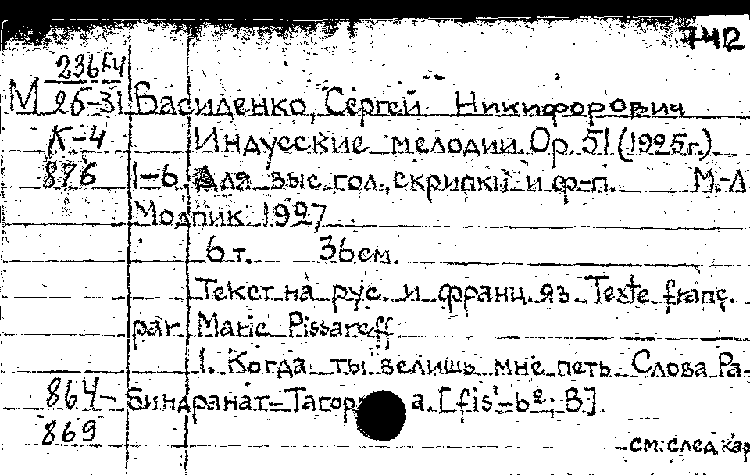 742
236 К-4
М 26-31 Василенко, Сергей Никифорович
К-4 Индусские мелодии. Op. 51 (1925г.).
876 1-6. Для выс. гол., скрипки и ф-п. М.-Л
Модпик 1927
6 т. 36см.
Текст на рус. и франц. яз. Texte franç.
par Marie Pissareff
1. Когда ты велишь мне петь. Слова Ра-
864- биндранат-Тагор а. [fis¹-b²; B].
869
см. след. кар